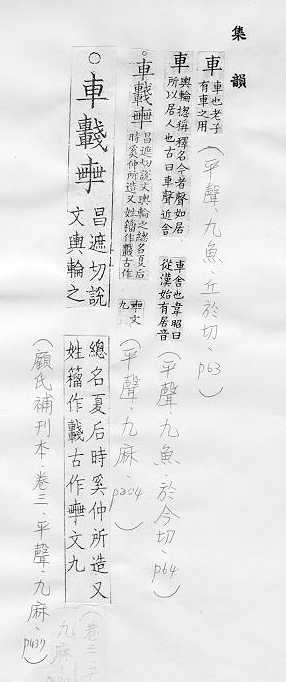 集韻
車 車也老子有車之用 (平聲、九魚、丘於切、p63)
車 輿輪揔稱釋名今者聲如居所以居人也古曰車聲近舍 車舍也韋昭曰從漢始有居音 (平聲、九魚、於今切、p64)
○車𨏖 昌遮切說文輿輪之總名夏后時奚仲所造又姓籀作𨏖古作 文九 (平聲、九麻、p204)
○車𨏖 昌遮切說文輿輪之
總名夏后時奚仲所造又姓籀作𨏖古作 文九
(顧氏補刊本、卷三、平聲、九麻、p437)